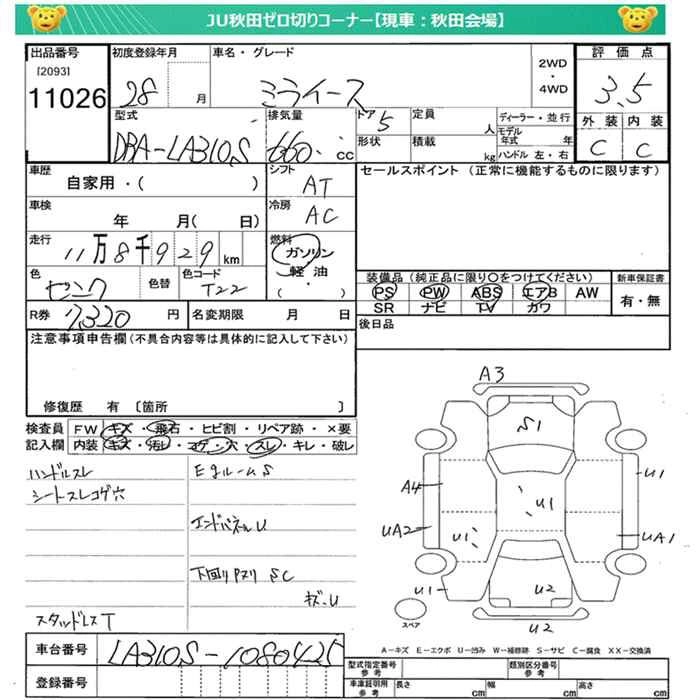 JU秋田ゼロ切りコーナー【現車：秋田会場】
出品番号
[2093]
11026
初度登録年月
28 月
車名・グレード
ミライース
2WD
・
4WD
評価点
3.5
外装 内装
C C
型式
DBA-LA310S
排気量
660 cc
ドア
5
形状
定員
人
積載
kg
ディーラー・並行
モデル年式 年
ハンドル 左・右
車歴
自家用・( )
シフト
AT
車検
年 月( 日)
冷房
AC
走行
11万8千929km
燃料
ガソリン
軽油
( )
色
ピンク
色替
色コード
T22
R券 7,320 円
名変期限 月 日
セールスポイント（正常に機能するものに限ります）
装備品（純正品に限り○をつけてください）
PS PW ABS エアB AW
SR ナビ TV カワ
新車保証書
有・無
後日品
注意事項申告欄（不具合内容等は具体的に記入して下さい）
修復歴 有 〔箇所 〕
検査員 FW キズ・飛石・ヒビ割・リペア跡・×要
記入欄 内装 キズ・汚レ・コゲ・穴・スレ・キレ・破レ
ハンドルスレ
シートスレコゲ穴
EgルームS
エンドパネルU
下回りPヌリ SC
キズ・U
スタッドレスT
A3
S1
A4
U1
U1
UA2
U1
UA1
U1
U2
U2
スペア
A－キズ E－エクボ U－凹み W－補修跡 S－サビ C－腐食 XX－交換済
車台番号 LA310S-1080425
登録番号
型式指定番号
参考
類別区分番号
参考
車庫証明用
参考
長さ cm
幅 cm
高さ cm